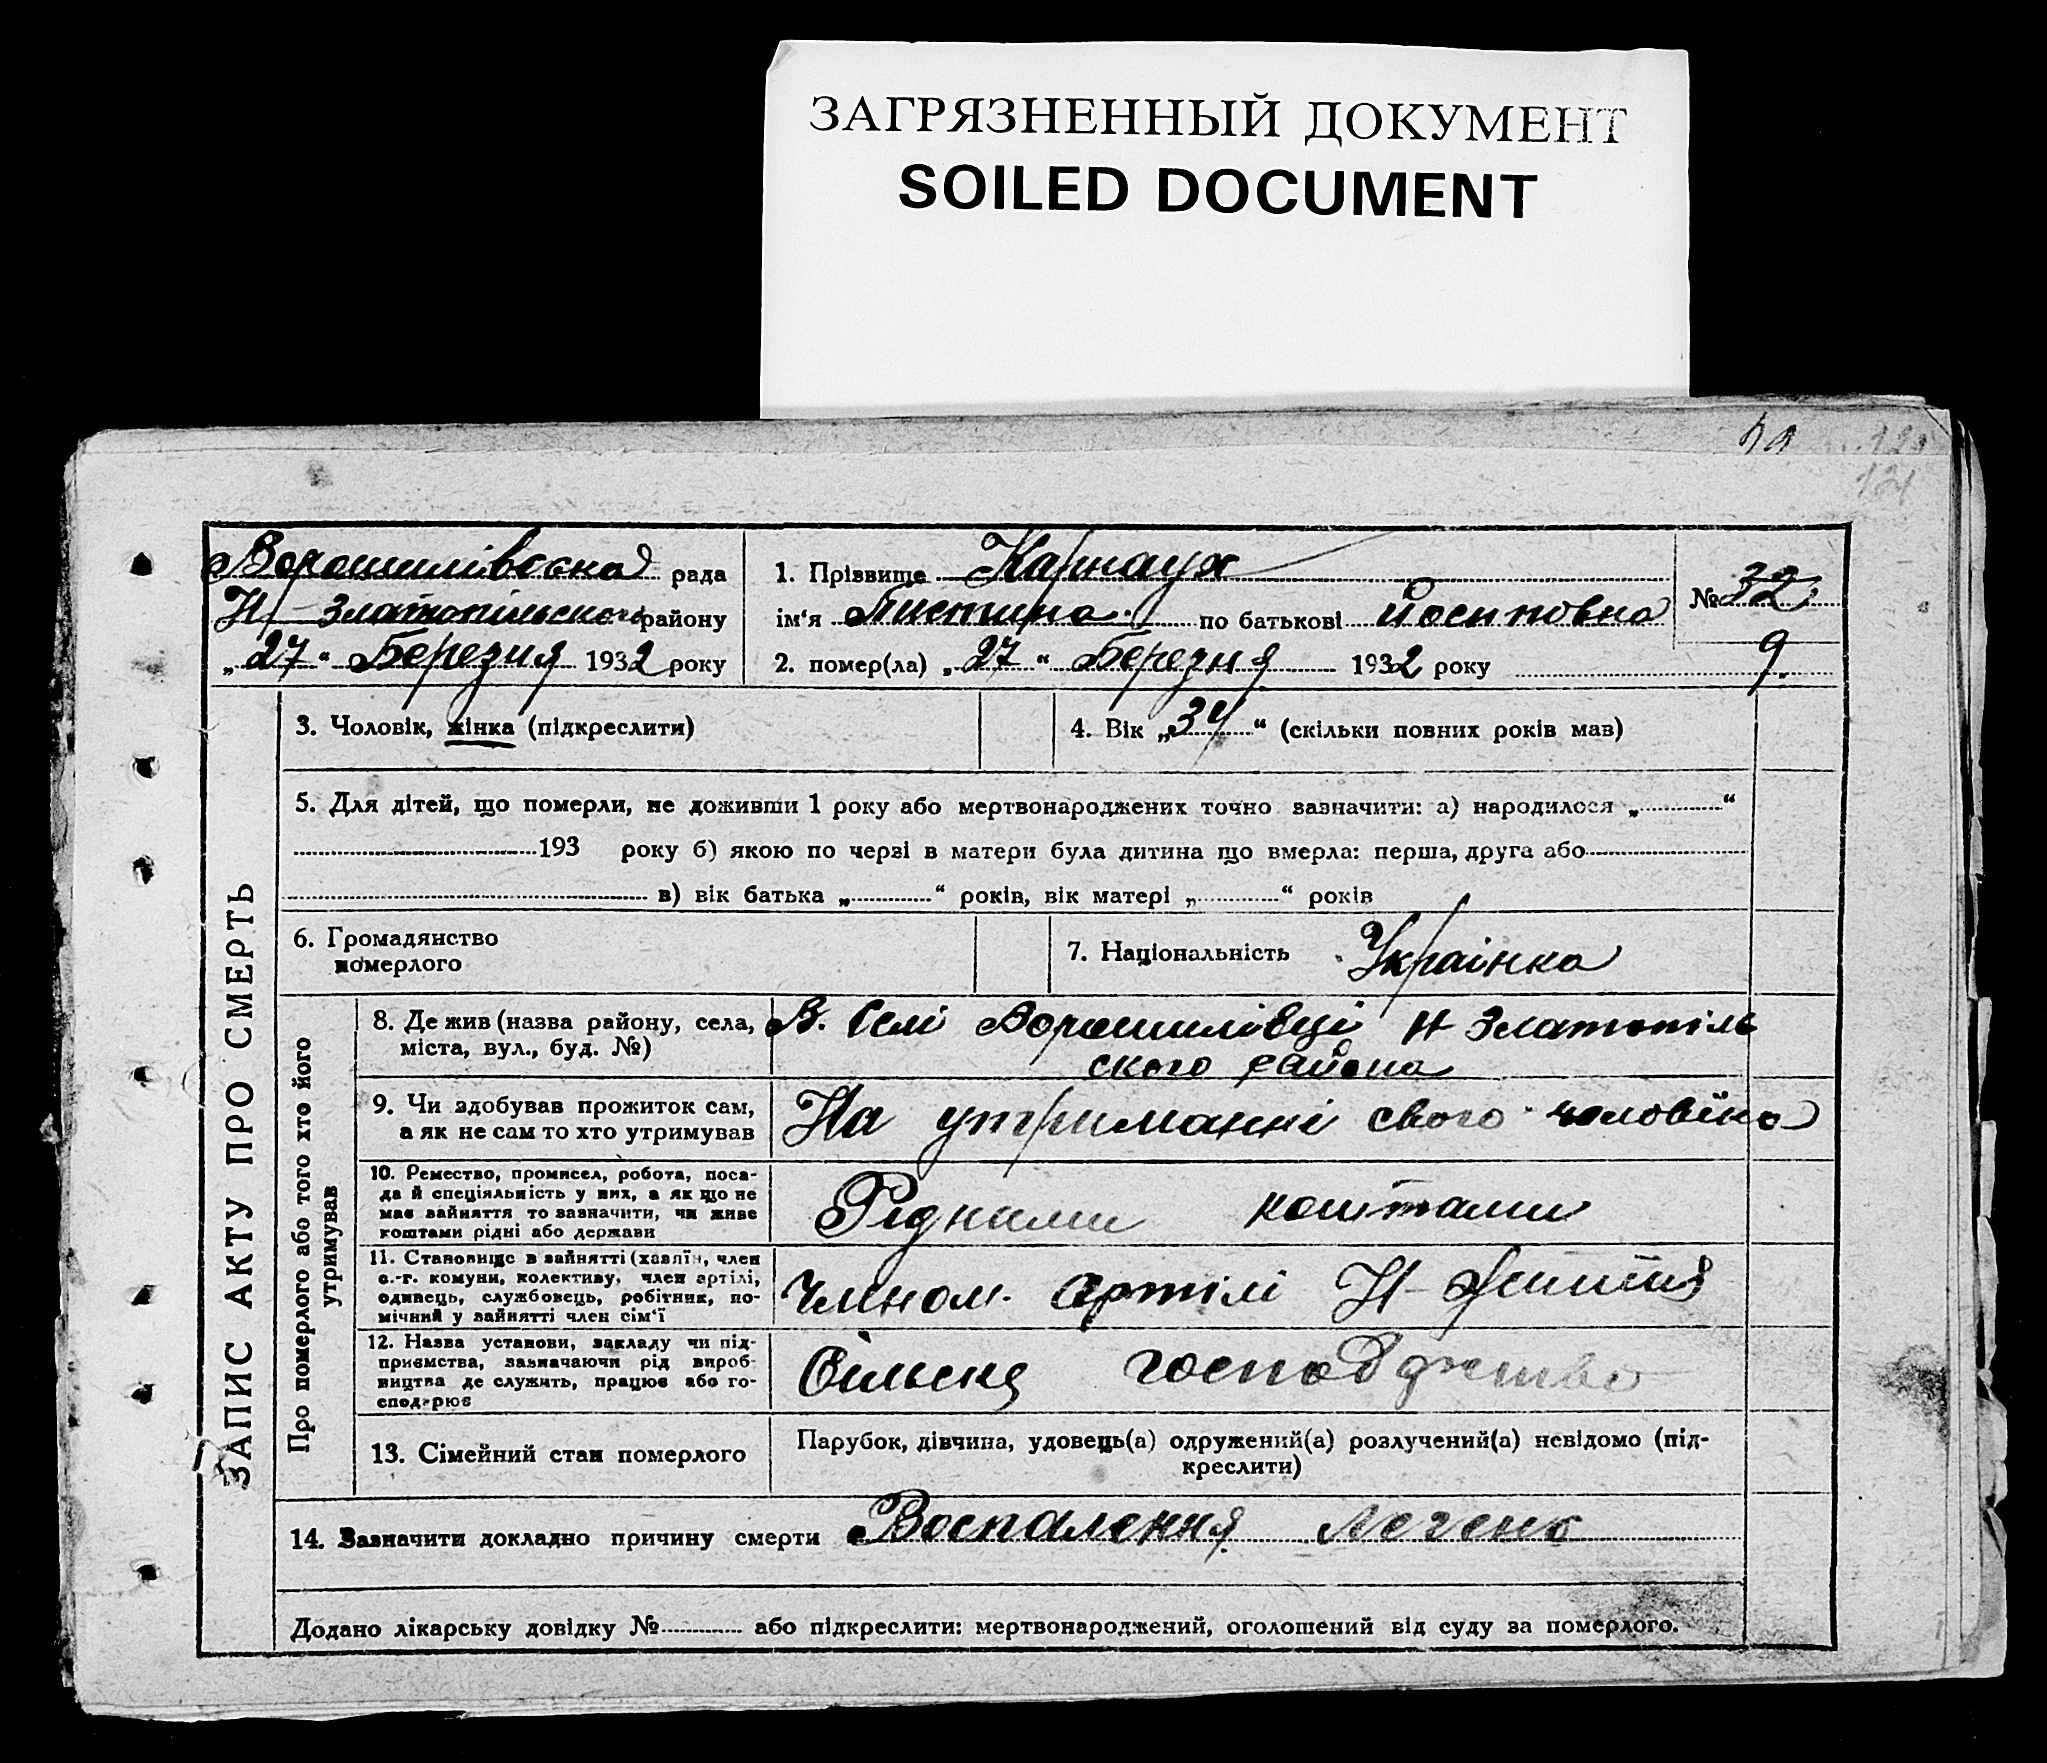 ЗАГРЯЗНЕННЫЙ ДОКУМЕНТ
SOILED DOCUMENT
121
Ворошилівська рада
Н-Златопільского району
„27“ Березня 1932 року
1. Прізвище Карнаух
ім'я Пистина по батькові Йосиповна
2. помер(ла) „27“ Березня 1932 року
№ 32
9.
ЗАПИС АКТУ ПРО СМЕРТЬ
3. Чоловік, жінка (підкреслити)
4. Вік „34“ (скільки повних років мав)
5. Для дітей, що померли, не доживши 1 року або мертвонароджених точно зазначити: а) народилося „ “
193 року б) якою по черзі в матери була дитина що вмерла: перша, друга або
в) вік батька „ “ років, вік матері „ “ років
6. Громадянство
померлого
7. Національність Українка
Про померлого або того хто його
утримував
8. Де жив (назва району, села,
міста, вул., буд. №)
В. Селі Ворошилівці Н Златопіль
ского района
9. Чи здобував прожиток сам,
а як не сам то хто утримував
На утриманні свого чоловіка
10. Ремество, промисел, робота, поса-
да й спеціяльність у них, а як що не
має зайняття то зазначити, чи живе
коштами рідні або держави
Рідними коштами
11. Становище в зайнятті (хазяїн, член
с.-г. комуни, колективу, член артілі,
одинець, службовець, робітник, по-
мічний у зайнятті член сім'ї
Членом артілі Н-
12. Назва установи, закладу чи під-
приємства, зазначаючи рід вироб-
ництва де служить, працює або го-
сподарює
Сільске господарство
13. Сімейний стан померлого
Парубок, дівчина, удовець(а) одружений(а) розлучений(а) невідомо (під-
креслити)
14. Зазначити докладно причину смерти Воспалення легень
Додано лікарську довідку № або підкреслити: мертвонароджений, оголошений від суду за померлого.